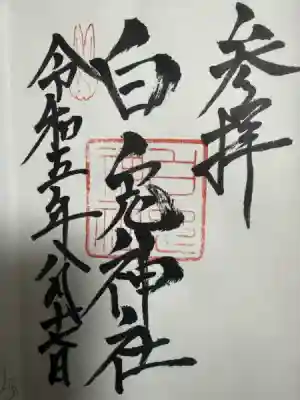 参拝
白兎神社
令和五年八月十六日